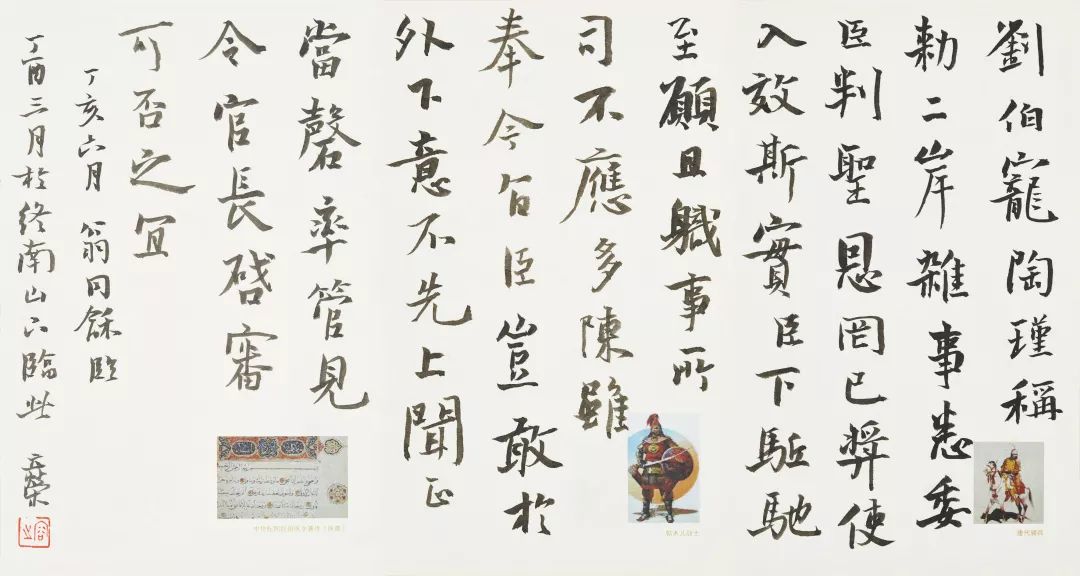 劉伯寵陶瑾稱
勑二岸雜事悉委
臣判聖恩罔已獎使
入效斯實臣下駈馳
至願且職事所
司不應多陳雖
奉今旨臣豈敢於
外下意不先上聞正
當罄率管見
令官長啓審
可否之宜
丁亥六月 翁同龢臨
丁酉三月於終南山下臨此
帖木儿战士
唐代骑兵